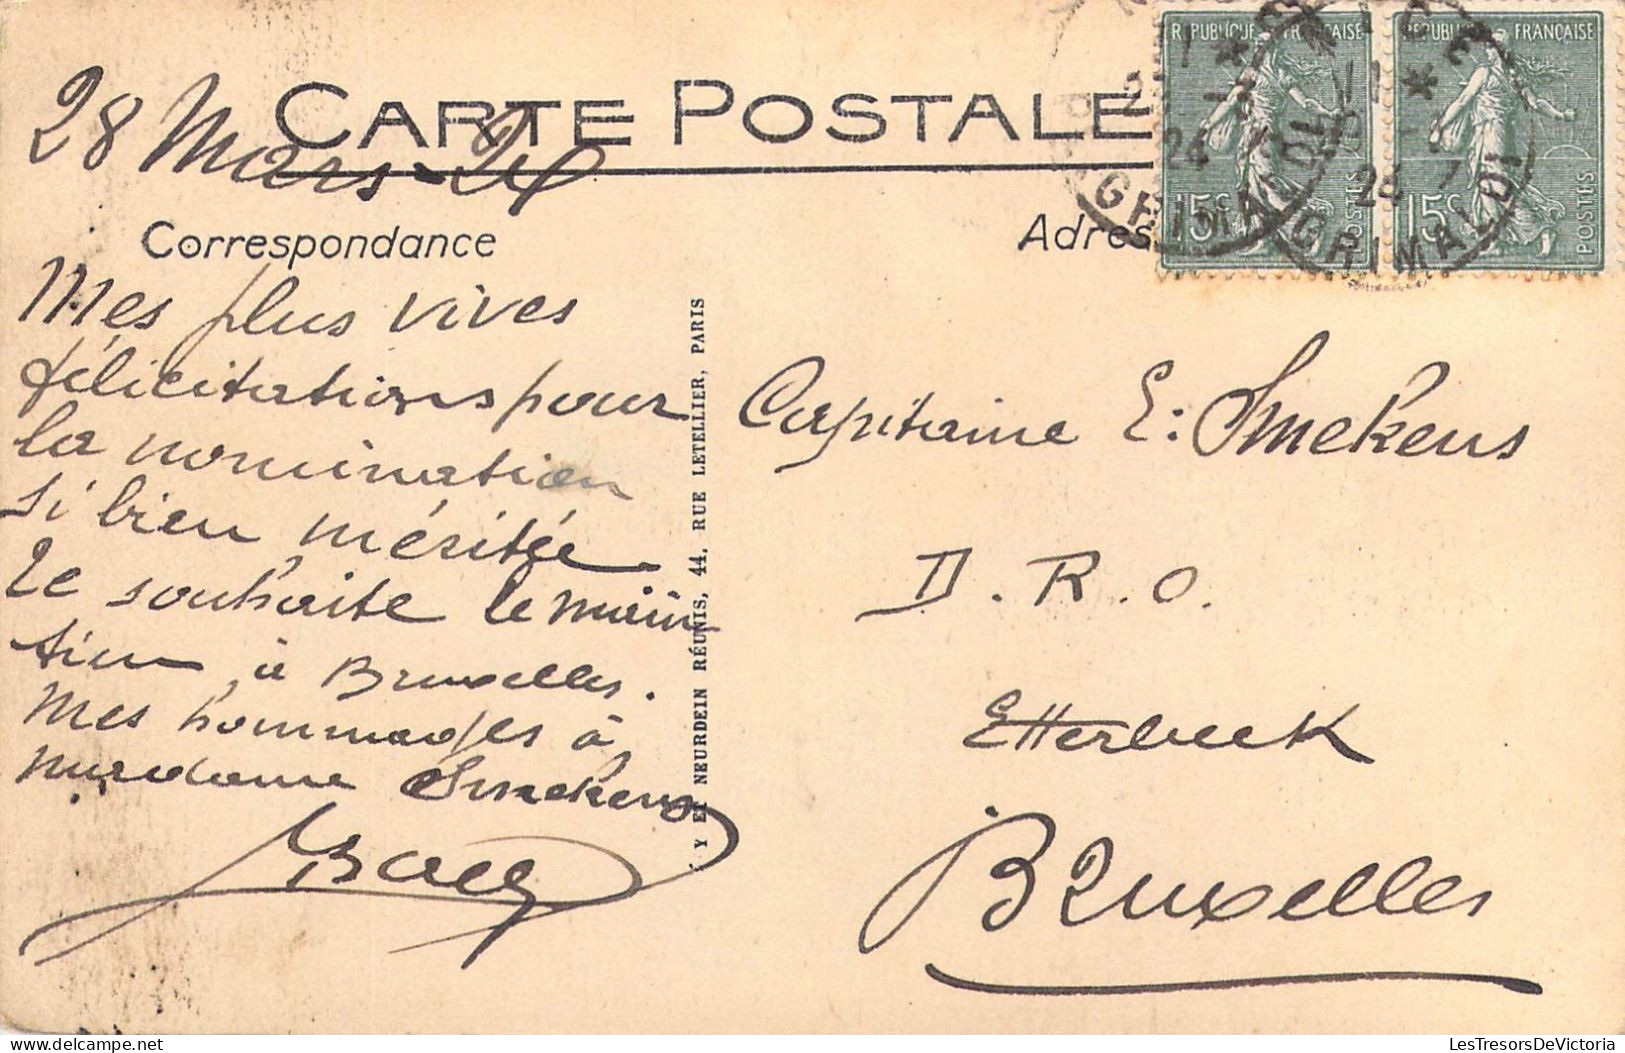 28 Mars-24
CARTE POSTALE
Correspondance
Mes plus vives
félicitations pour
la nomination
si bien méritée
Je souhaite le main
tien à Bruxelles.
Mes hommages à
madame Smekens
Y ET NEURDEIN RÉUNIS, 44, RUE LETELLIER, PARIS
REPUBLIQUE FRANÇAISE
15c
POSTES
REPUBLIQUE FRANÇAISE
15c
POSTES
GRIMALDI
GRIMALDI
Adres
Capitaine E: Smekens
D.R.O.
Etterbeek
Bruxelles
LesTresorsDeVictoria